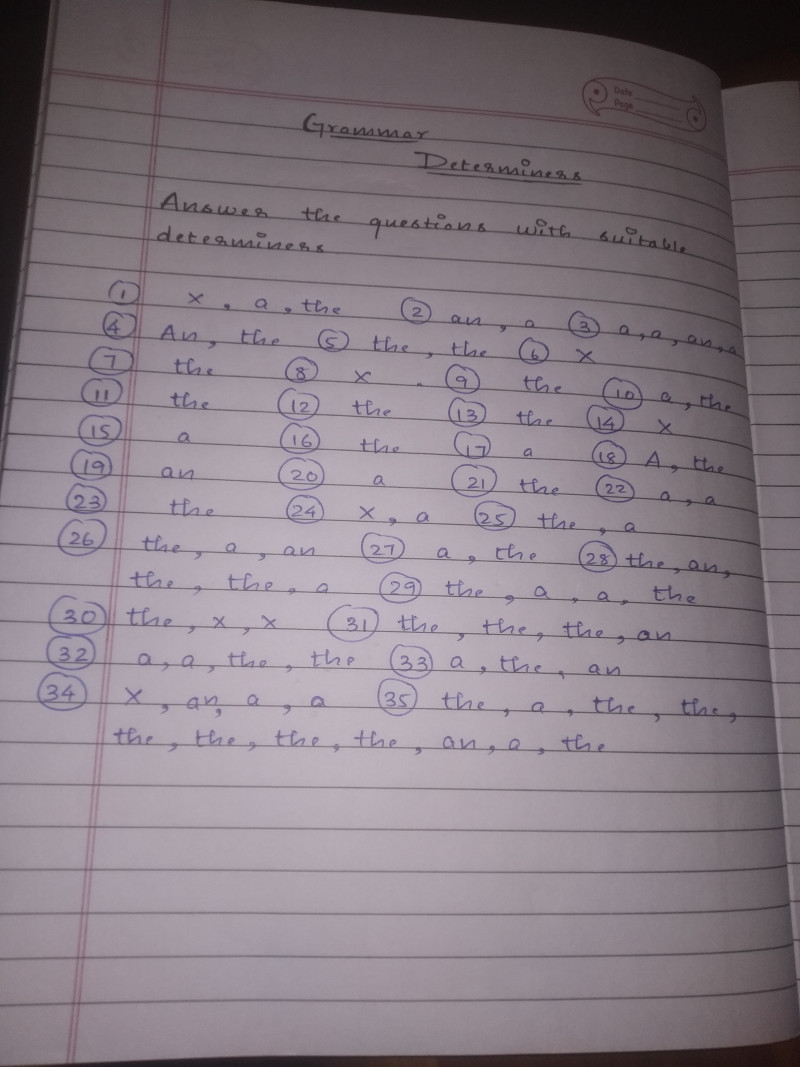 Date
Page
Grammar
Determiners
Answer the questions with suitable
determiners
① x, a, the ② an, a ③ a, a, an, a
④ An, the ⑤ the, the ⑥ x
⑦ the ⑧ x . ⑨ the ⑩ a, the
⑪ the ⑫ the ⑬ the ⑭ x
⑮ a ⑯ the ⑰ a ⑱ A, the
⑲ an ⑳ a ㉑ the ㉒ a, a
㉓ the ㉔ x, a ㉕ the, a
㉖ the, a, an ㉗ a, the ㉘ the, an,
the, the, a ㉙ the, a, a, the
㉚ the, x, x ㉛ the, the, the, an
㉜ a, a, the, the ㉝ a, the, an
㉞ x, an, a, a ㉟ the, a, the, the,
the, the, the, the, an, a, the